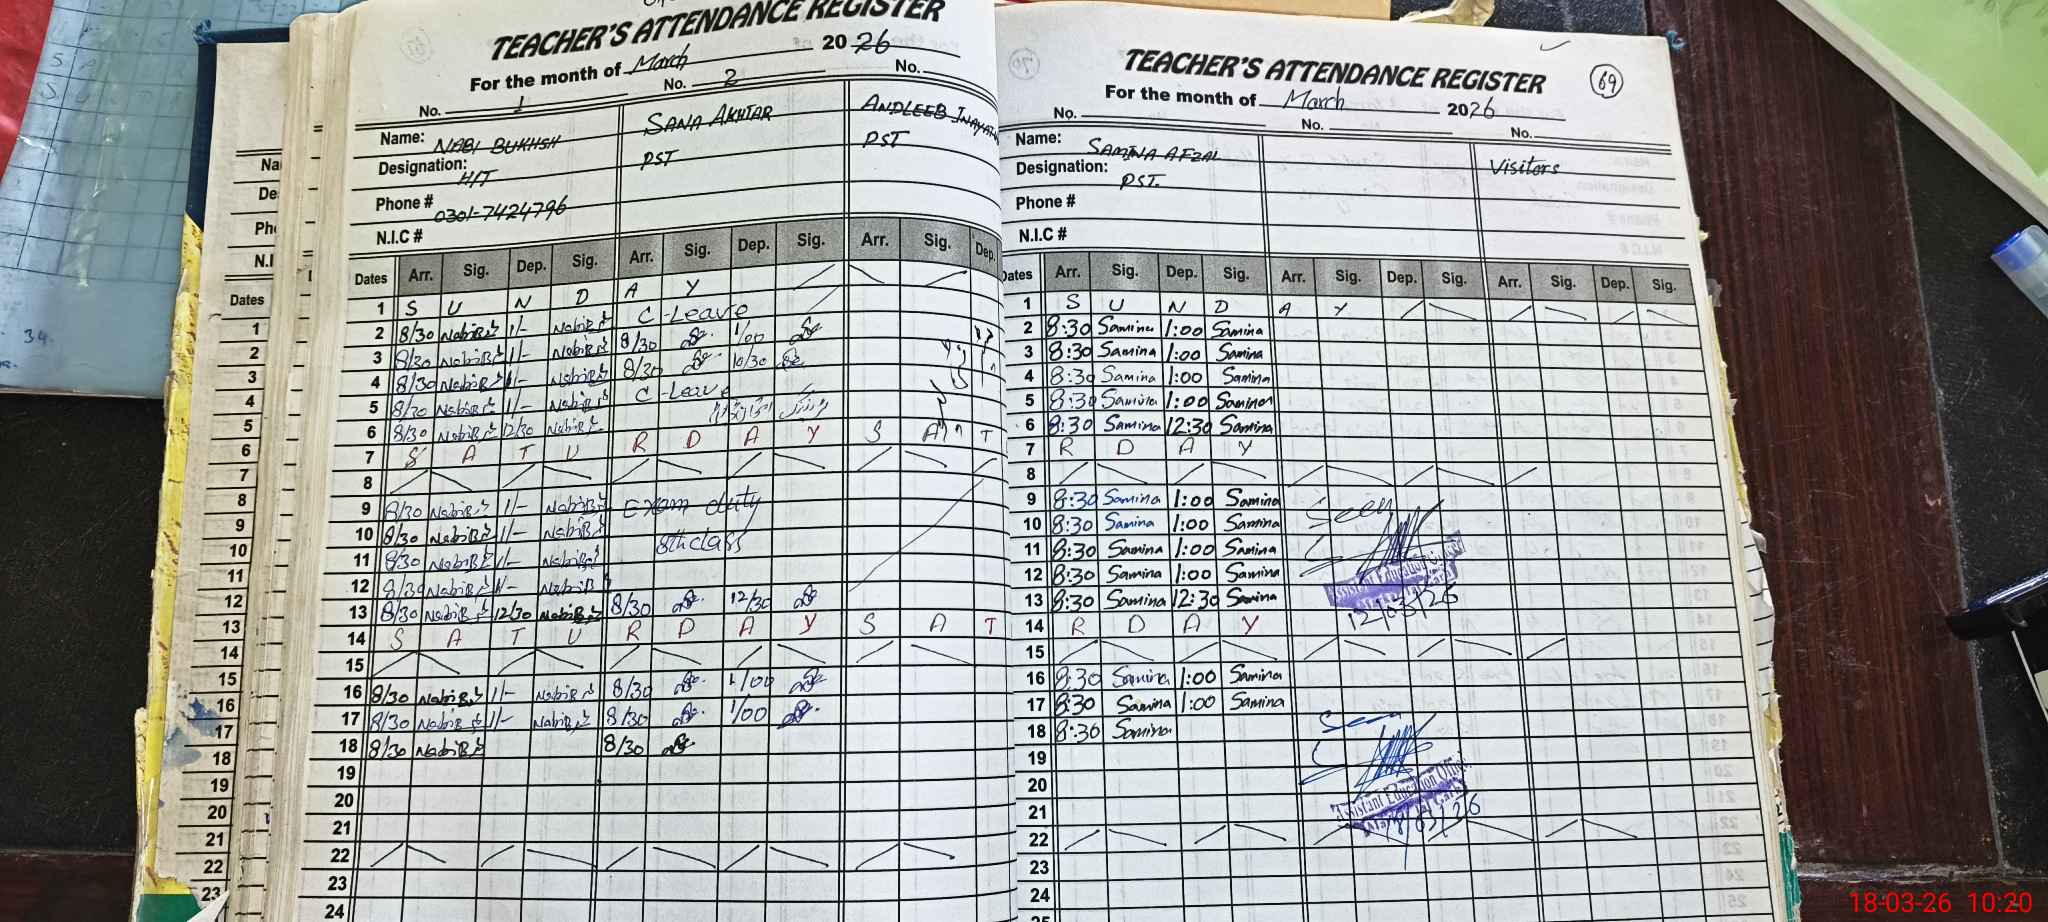 TEACHER'S ATTENDANCE REGISTER
For the month of March 2026
No. 1 No. 2 No.
Name: NABI BUKHSH SANA AKHTAR ANDLEEB INAYAT
Designation: H/T PST PST
Phone # 0301-7424796
N.I.C #
Dates Arr. Sig. Dep. Sig. Arr. Sig. Dep. Sig. Arr. Sig. Dep.
1 S U N D A Y
2 8/30 NabiB 1/- NabiB C-Leave
3 8/30 NabiB 1/- NabiB 8/30 1/00
4 8/30 NabiB 1/- NabiB 8/30 10/30
5 8/30 NabiB 1/- NabiB C-Leave
6 8/30 NabiB 12/30 NabiB
7 S A T U R D A Y S A T
8
9 8/30 NabiB 1/- NabiB Exam duty
10 8/30 NabiB 1/- NabiB 8th class
11 8/30 NabiB 1/- NabiB
12 8/30 NabiB 1/- NabiB
13 8/30 NabiB 12/30 NabiB 8/30 12/30
14 S A T U R D A Y S A T
15
16 8/30 NabiB 1/- NabiB 8/30 1/00
17 8/30 NabiB 1/- NabiB 8/30 1/00
18 8/30 NabiB 8/30
19
20
21
22
23
24
TEACHER'S ATTENDANCE REGISTER 69
For the month of March 2026
No. No. No.
Name: SAMINA AFZAL Visitors
Designation: PST.
Phone #
N.I.C #
Dates Arr. Sig. Dep. Sig. Arr. Sig. Dep. Sig. Arr. Sig. Dep. Sig.
1 S U N D A Y
2 8:30 Samina 1:00 Samina
3 8:30 Samina 1:00 Samina
4 8:30 Samina 1:00 Samina
5 8:30 Samina 1:00 Samina
6 8:30 Samina 12:30 Samina
7 R D A Y
8
9 8:30 Samina 1:00 Samina
10 8:30 Samina 1:00 Samina Seen
11 8:30 Samina 1:00 Samina
12 8:30 Samina 1:00 Samina Assistant Education Officer
13 8:30 Samina 12:30 Samina 12/03/26
14 R D A Y
15
16 8:30 Samina 1:00 Samina
17 8:30 Samina 1:00 Samina
18 8:30 Samina Seen
19
20
21 Assistant Education Officer
22 18/03/26
23
24
25
Dates
1
2
3
4
5
6
7
8
9
10
11
12
13
14
15
16
17
18
19
20
21
22
23
18-03-26 10:20